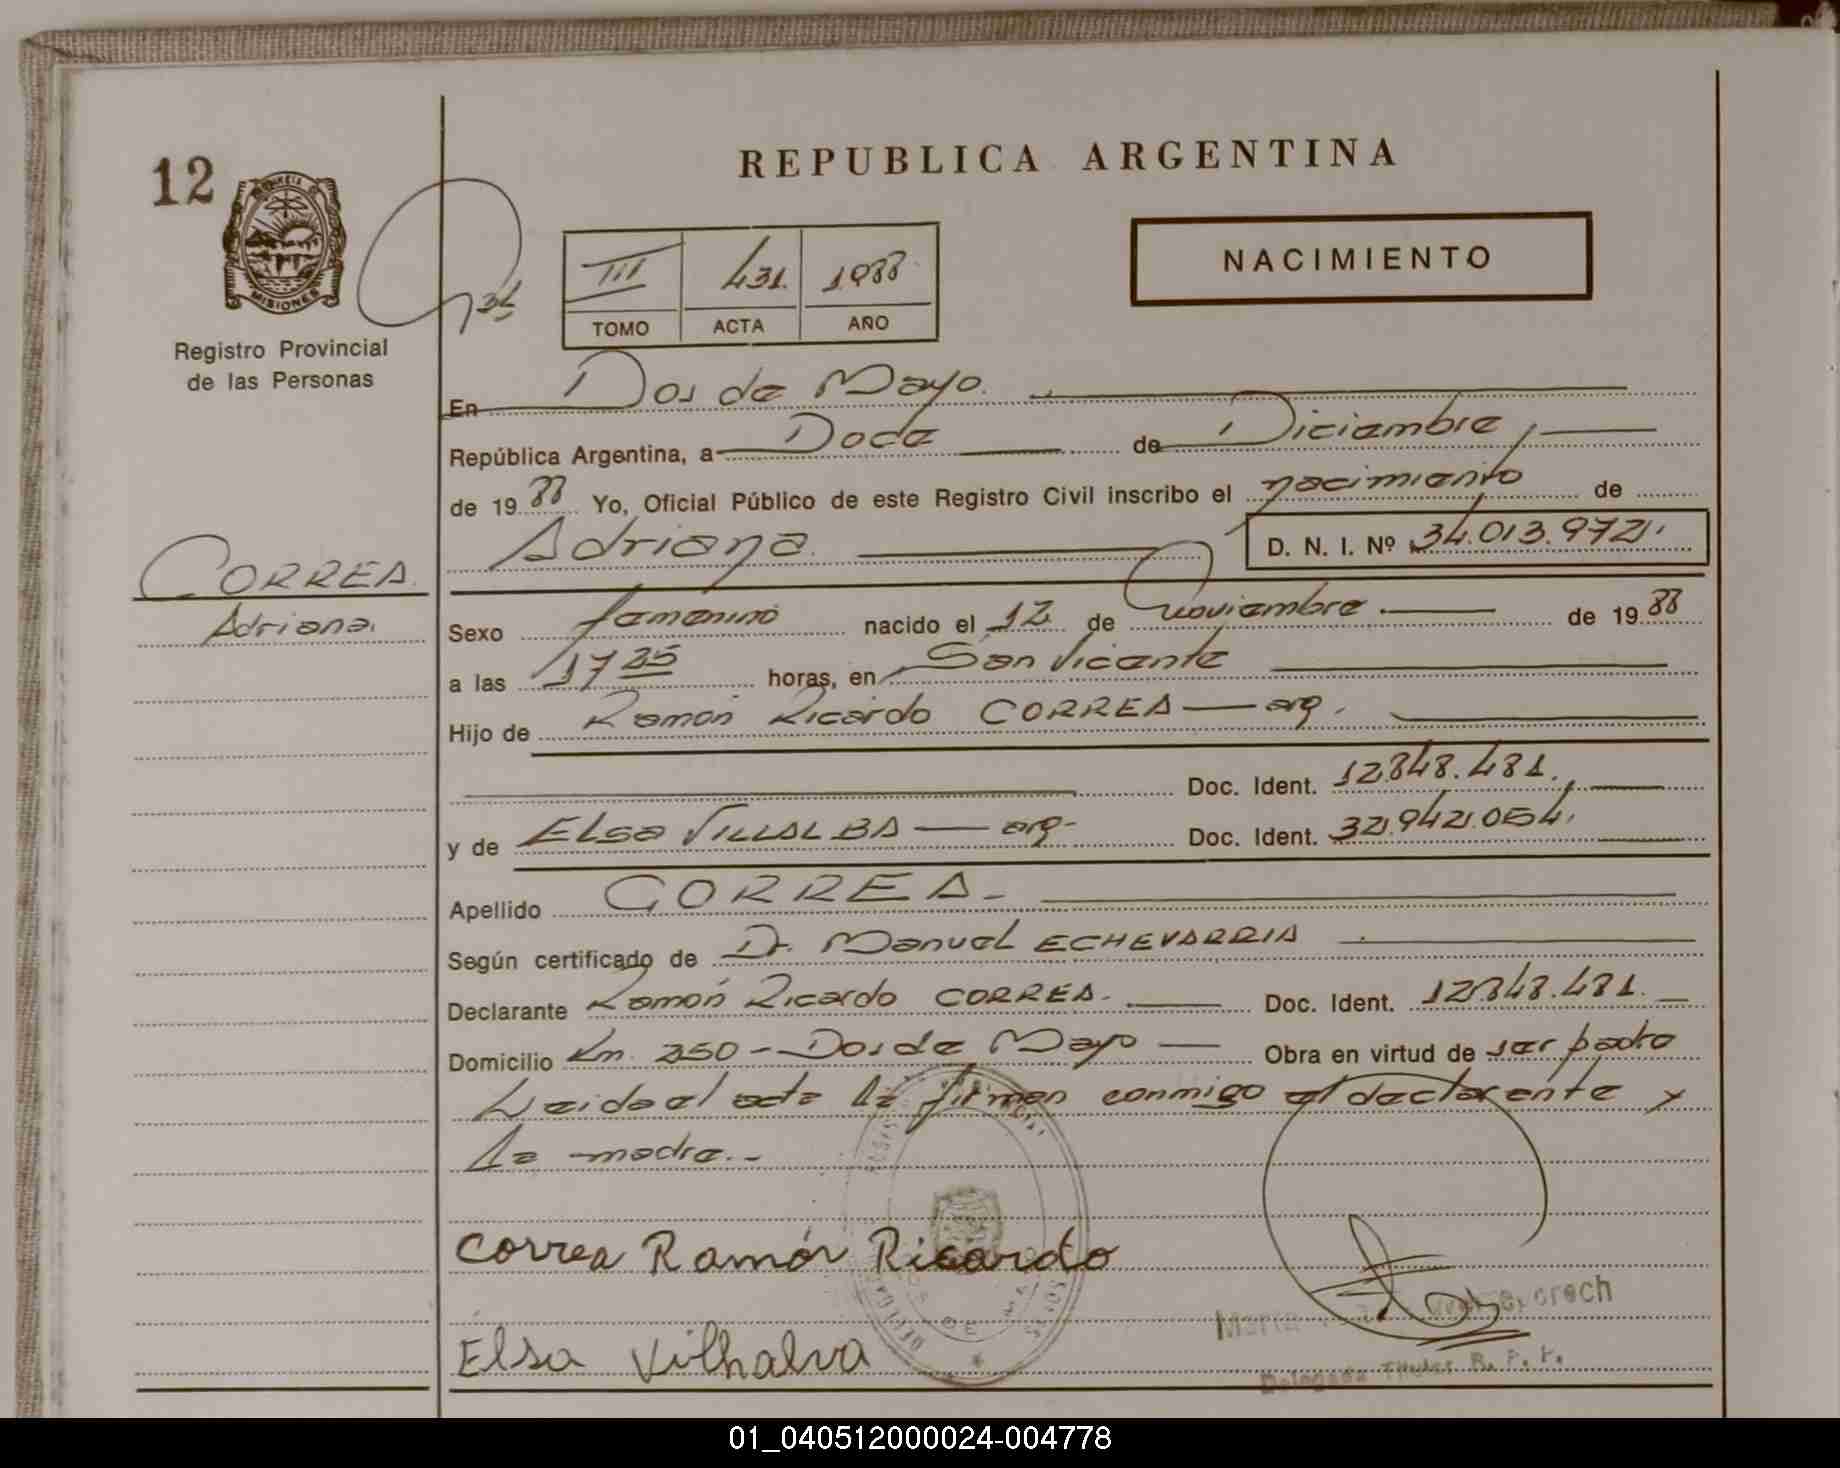 REPUBLICA ARGENTINA
12
MISIONES
Registro Provincial
de las Personas
III 431. 1988.
TOMO ACTA AÑO
NACIMIENTO
En Dos de Mayo.
República Argentina, a Doce de Diciembre,
de 19 88 Yo, Oficial Público de este Registro Civil inscribo el nacimiento de
Adriana. D. N. I. Nº 34.013.972.
CORREA.
Adriana.
Sexo femenino nacido el 12 de Noviembre de 19 88
a las 17 25 horas, en San Vicente
Hijo de Ramón Ricardo CORREA — arg.
Doc. Ident. 12.848.481.
y de Elsa VILLALBA — arg- Doc. Ident. 32.942.054.
Apellido CORREA.-
Según certificado de Dr. Manuel ECHEVARRIA
Declarante Ramón Ricardo CORREA. Doc. Ident. 12.848.481.
Domicilio Km. 250 - Dos de Mayo — Obra en virtud de ser padre
Leida el acta la firman conmigo el declarante y
la madre.-
Correa Ramón Ricardo
Elsa Vilhalva
Maria
Delegada Titular R. P. P.
01_040512000024-004778